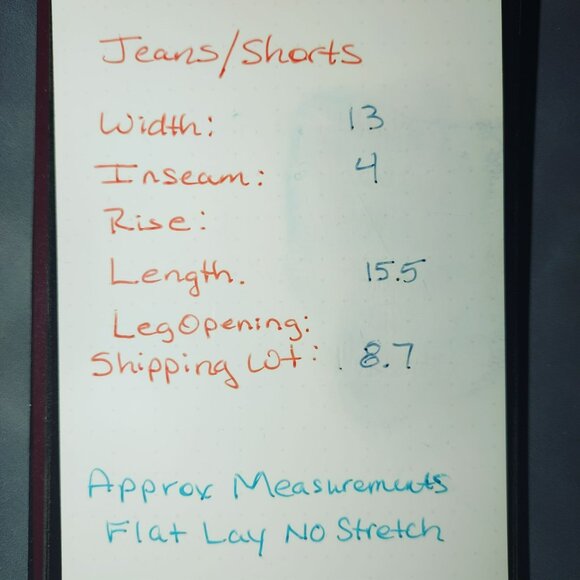 Jeans/Shorts
Width: 13
Inseam: 4
Rise:
Length. 15.5
Leg Opening:
Shipping Wt: 8.7
Approx Measurements
Flat Lay No Stretch